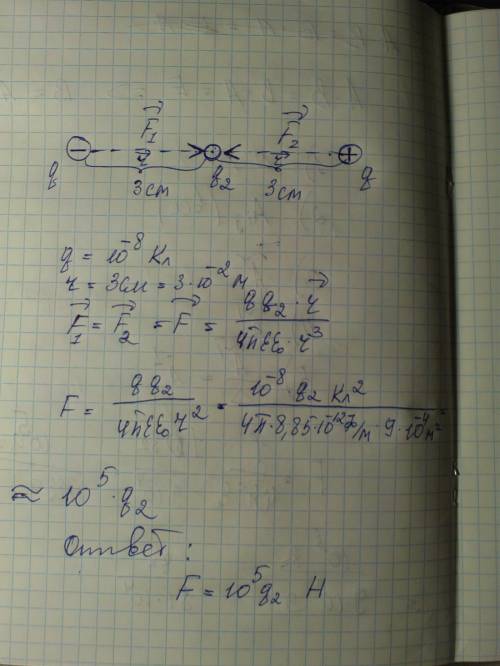 F⃗₁ F⃗₂
− r⃗ r⃗ +
q 3см q₂ 3см q
q = 10⁻⁸ Кл
r = 3см = 3·10⁻² м
F⃗₁ = F⃗₂ = F⃗ = qq₂·r⃗ / 4πεε₀·r³
F = qq₂ / 4πεε₀r² = 10⁻⁸·q₂ Кл² / 4π·8,85·10⁻¹²Ф/м·9·10⁻⁴м² =
≈ 10⁵·q₂
Ответ:
F = 10⁵q₂ Н